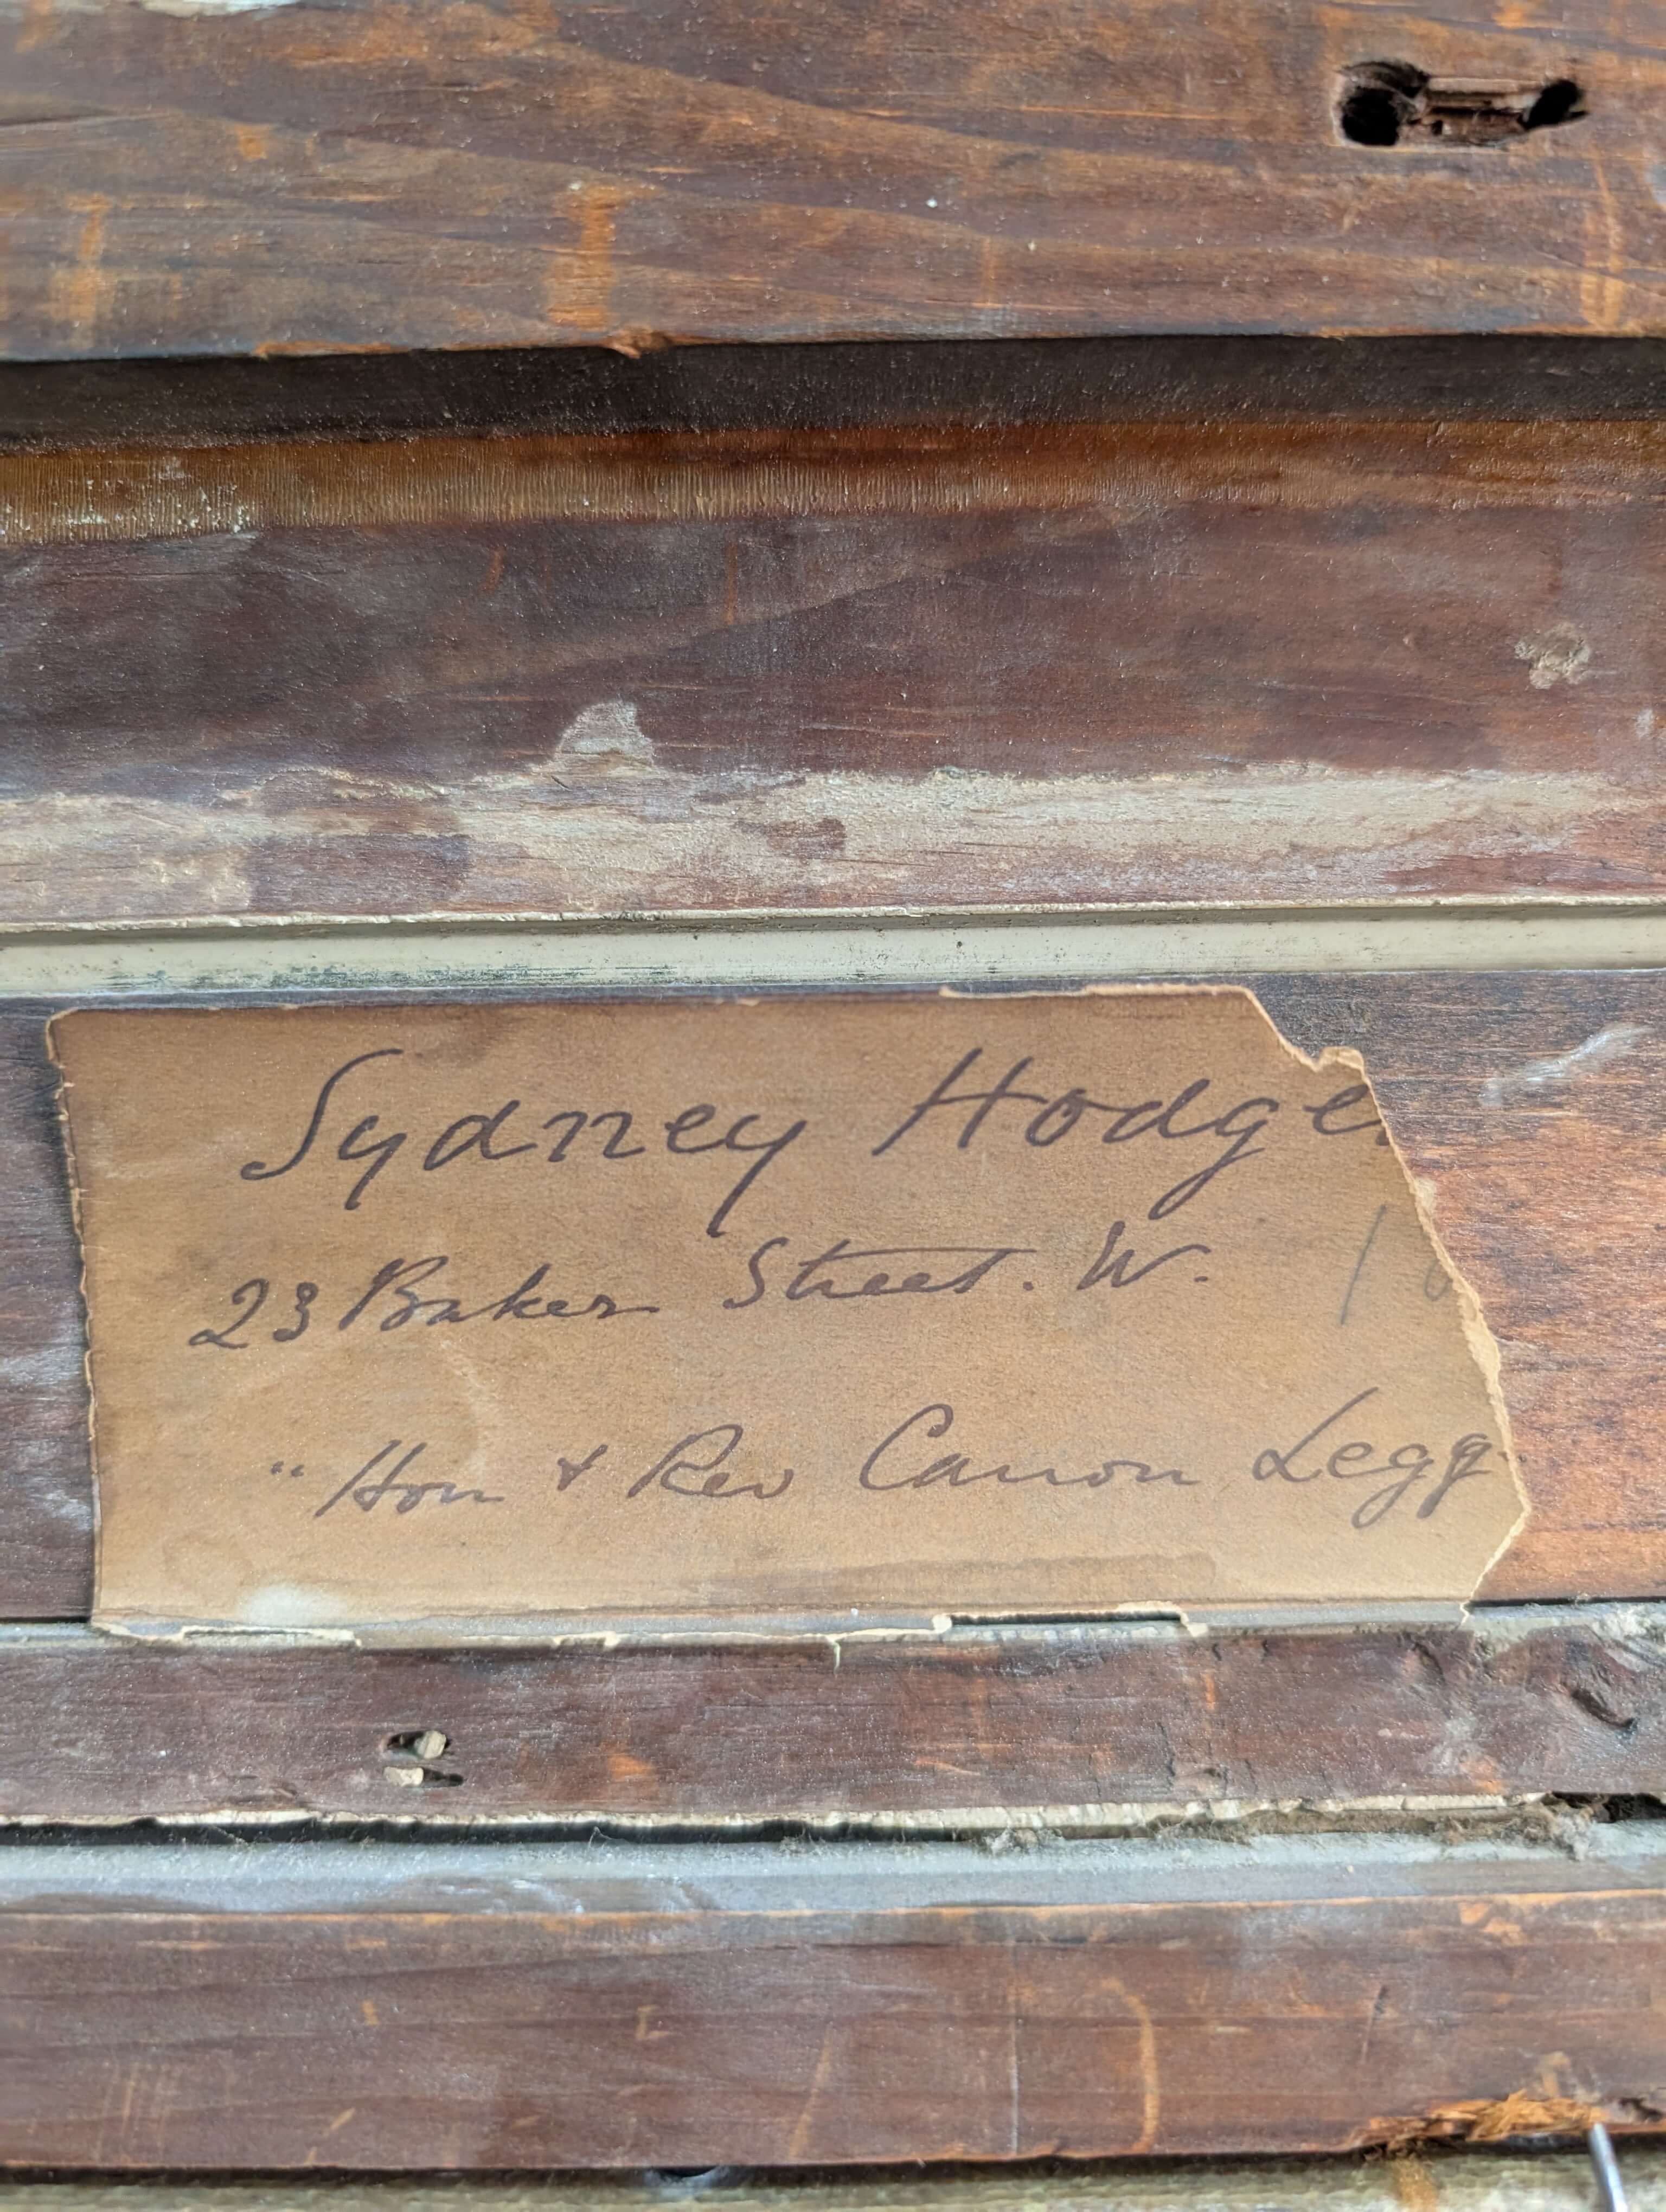 Sydney Hodge
23 Baker Street. W.
" Hon & Rev Canon Legg